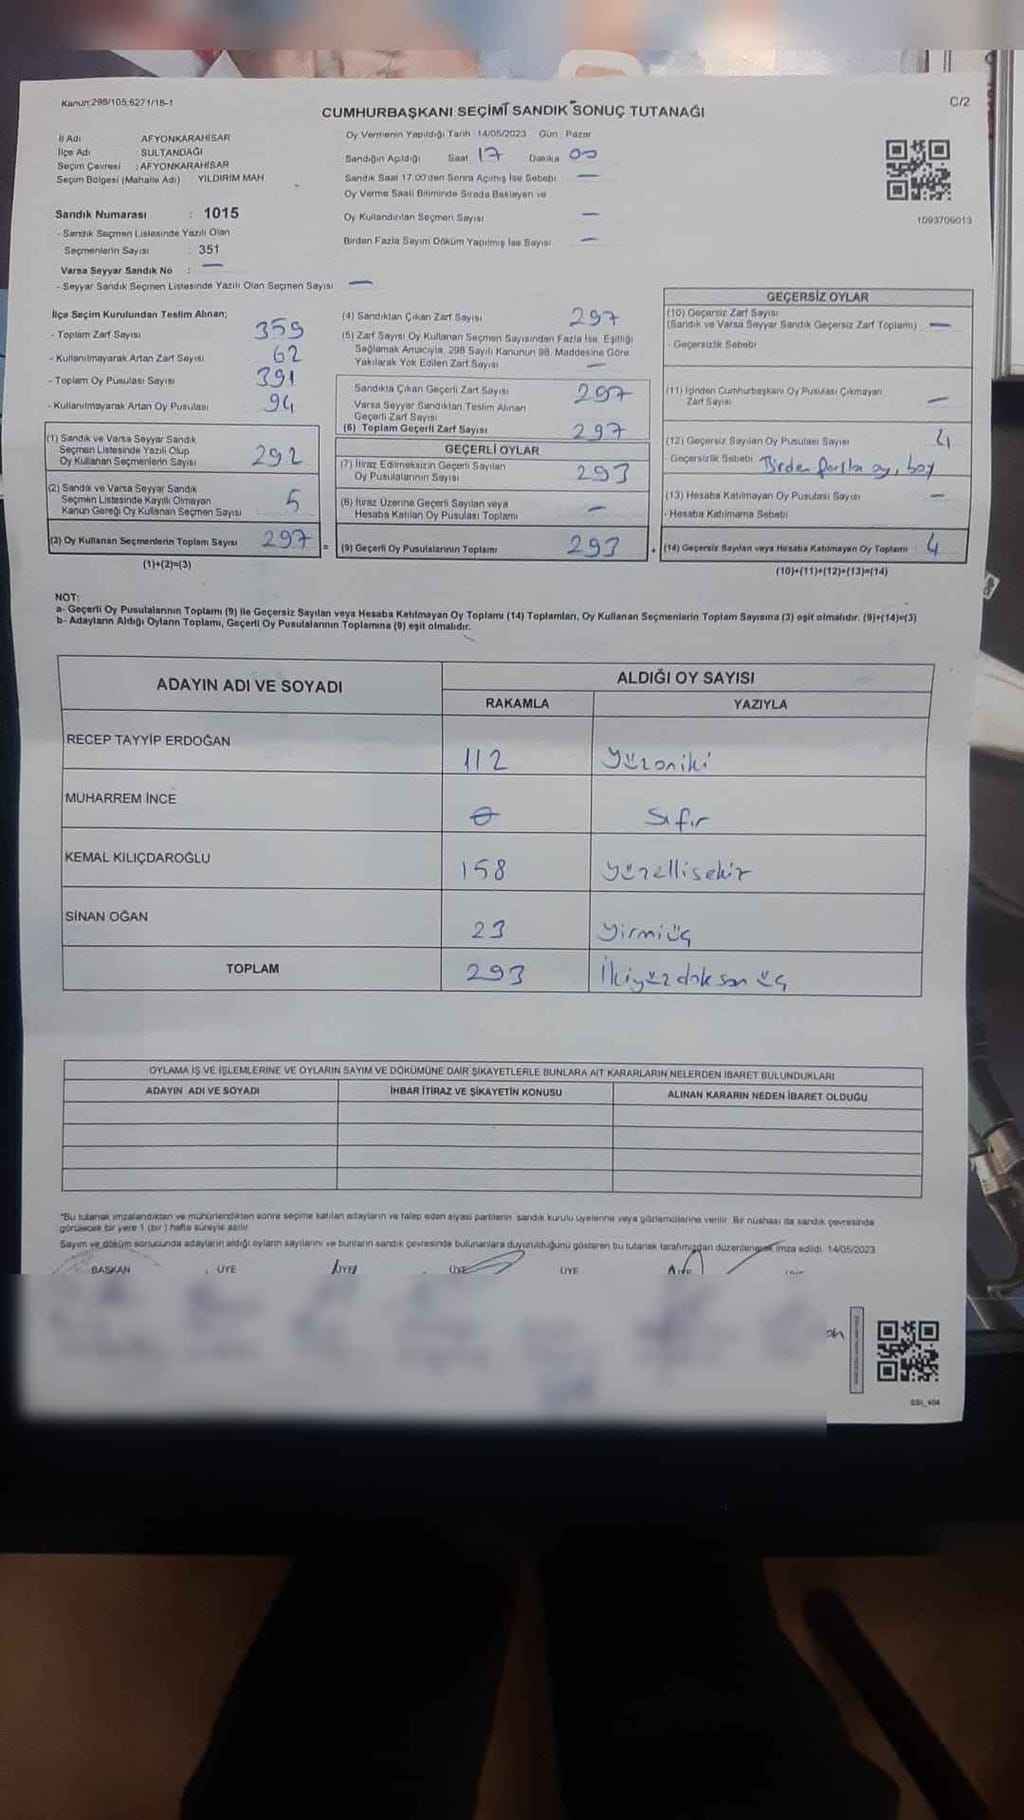 Kanun:298/105,6271/18-1
C/2
CUMHURBAŞKANI SEÇİMİ SANDIK SONUÇ TUTANAĞI
İl Adı AFYONKARAHİSAR
İlçe Adı SULTANDAĞI
Seçim Çevresi : AFYONKARAHİSAR
Seçim Bölgesi (Mahalle Adı) YILDIRIM MAH
Oy Vermenin Yapıldığı Tarih 14/05/2023 Gün Pazar
Sandığın Açıldığı Saat 17 Dakika 00
Sandık Saat 17.00'den Sonra Açılmış İse Sebebi —
Oy Verme Saati Bitiminde Sırada Bekleyen ve
Oy Kullandırılan Seçmen Sayısı —
Birden Fazla Sayım Döküm Yapılmış İse Sayısı —
1093709013
Sandık Numarası : 1015
- Sandık Seçmen Listesinde Yazılı Olan
Seçmenlerin Sayısı : 351
Varsa Seyyar Sandık No : —
- Seyyar Sandık Seçmen Listesinde Yazılı Olan Seçmen Sayısı —
İlçe Seçim Kurulundan Teslim Alınan;
- Toplam Zarf Sayısı 359
- Kullanılmayarak Artan Zarf Sayısı 62
- Toplam Oy Pusulası Sayısı 391
- Kullanılmayarak Artan Oy Pusulası 94
(1) Sandık ve Varsa Seyyar Sandık
Seçmen Listesinde Yazılı Olup
Oy Kullanan Seçmenlerin Sayısı 292
(2) Sandık ve Varsa Seyyar Sandık
Seçmen Listesinde Kayıtlı Olmayan
Kanun Gereği Oy Kullanan Seçmen Sayısı 5
(3) Oy Kullanan Seçmenlerin Toplam Sayısı 297 =
(1)+(2)=(3)
(4) Sandıktan Çıkan Zarf Sayısı 297
(5) Zarf Sayısı Oy Kullanan Seçmen Sayısından Fazla İse, Eşitliği
Sağlamak Amacıyla, 298 Sayılı Kanunun 98. Maddesine Göre
Yakılarak Yok Edilen Zarf Sayısı —
Sandıkta Çıkan Geçerli Zarf Sayısı 297
Varsa Seyyar Sandıktan Teslim Alınan
Geçerli Zarf Sayısı
(6) Toplam Geçerli Zarf Sayısı 297
GEÇERLİ OYLAR
(7) İtiraz Edilmeksizin Geçerli Sayılan
Oy Pusulalarının Sayısı 293
(8) İtiraz Üzerine Geçerli Sayılan veya
Hesaba Katılan Oy Pusulası Toplamı —
(9) Geçerli Oy Pusulalarının Toplamı 293 +
GEÇERSİZ OYLAR
(10) Geçersiz Zarf Sayısı
(Sandık ve Varsa Seyyar Sandık Geçersiz Zarf Toplamı) —
- Geçersizlik Sebebi
(11) İçinden Cumhurbaşkanı Oy Pusulası Çıkmayan
Zarf Sayısı —
(12) Geçersiz Sayılan Oy Pusulası Sayısı 4
- Geçersizlik Sebebi Birden fazla oy, boş
(13) Hesaba Katılmayan Oy Pusulası Sayısı —
- Hesaba Katılmama Sebebi
(14) Geçersiz Sayılan veya Hesaba Katılmayan Oy Toplamı 4
(10)+(11)+(12)+(13)=(14)
NOT:
a- Geçerli Oy Pusulalarının Toplamı (9) ile Geçersiz Sayılan veya Hesaba Katılmayan Oy Toplamı (14) Toplamları, Oy Kullanan Seçmenlerin Toplam Sayısına (3) eşit olmalıdır. (9)+(14)=(3)
b- Adayların Aldığı Oyların Toplamı, Geçerli Oy Pusulalarının Toplamına (9) eşit olmalıdır.
ADAYIN ADI VE SOYADI
ALDIĞI OY SAYISI
RAKAMLA YAZIYLA
RECEP TAYYİP ERDOĞAN 112 Yüzoniki
MUHARREM İNCE 0 Sıfır
KEMAL KILIÇDAROĞLU 158 yüzellisekiz
SİNAN OĞAN 23 yirmiüç
TOPLAM 293 İkiyüzdoksanüç
OYLAMA İŞ VE İŞLEMLERİNE VE OYLARIN SAYIM VE DÖKÜMÜNE DAİR ŞİKAYETLERLE BUNLARA AİT KARARLARIN NELERDEN İBARET BULUNDUKLARI
ADAYIN ADI VE SOYADI İHBAR İTİRAZ VE ŞİKAYETİN KONUSU ALINAN KARARIN NEDEN İBARET OLDUĞU
*Bu tutanak imzalandıktan ve mühürlendikten sonra seçime katılan adayların ve talep eden siyasi partilerin sandık kurulu üyelerine veya gözlemcilerine verilir. Bir nüshası da sandık çevresinde
görülecek bir yere 1 (bir) hafta süreyle asılır.
Sayım ve döküm sonucunda adayların aldığı oyların sayılarını ve bunların sandık çevresinde bulunanlara duyurulduğunu gösteren bu tutanak tarafımızdan düzenlenerek imza edildi. 14/05/2023
BAŞKAN ÜYE ÜYE ÜYE ÜYE
SSİ_404